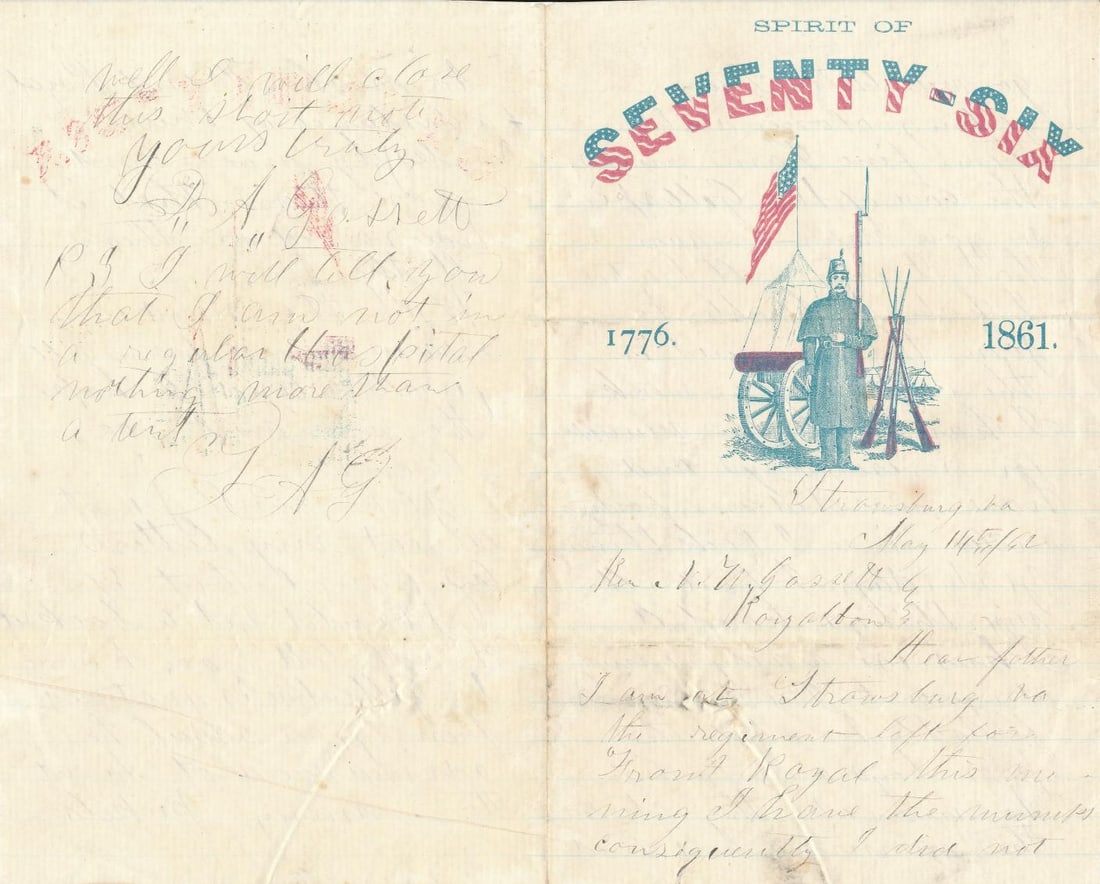 SPIRIT OF
SEVENTY-SIX
1776. 1861.
Strawsburg va
May 14th/62
Rev N. W. Gassett
Royalton
Dear father
I am at Strawsburg va
the regiment left for
Front Royal this mo-
rning I have the mumps
consequently I did not
well I will close
this short note
yours truly
A Gassett
P S I will tell you
that I am not in
a regular Hospital
nothing more than
a tent
A G